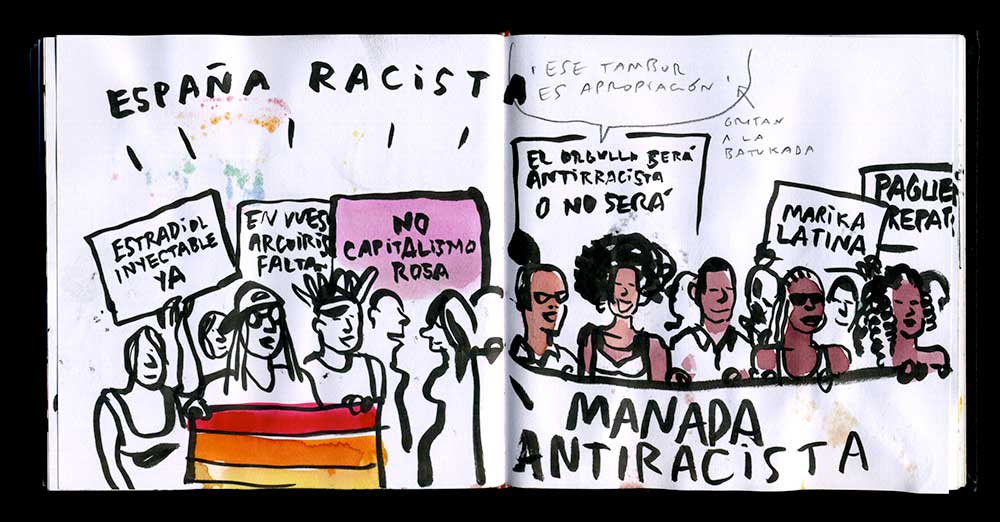 ESPAÑA RACISTA
'ESE TAMBOR
ES APROPIACIÓN'
GRITAN
A LA
BATUKADA
ESTRADIOL
INYECTABLE
YA
EN VUES
ARCOIRIS
FALTAN
NO
CAPITALISMO
ROSA
EL ORGULLO SERÁ
ANTIRRACISTA
O NO SERÁ
MARIKA
LATINA
PAGUEN
REPAR
MANADA
ANTIRACISTA